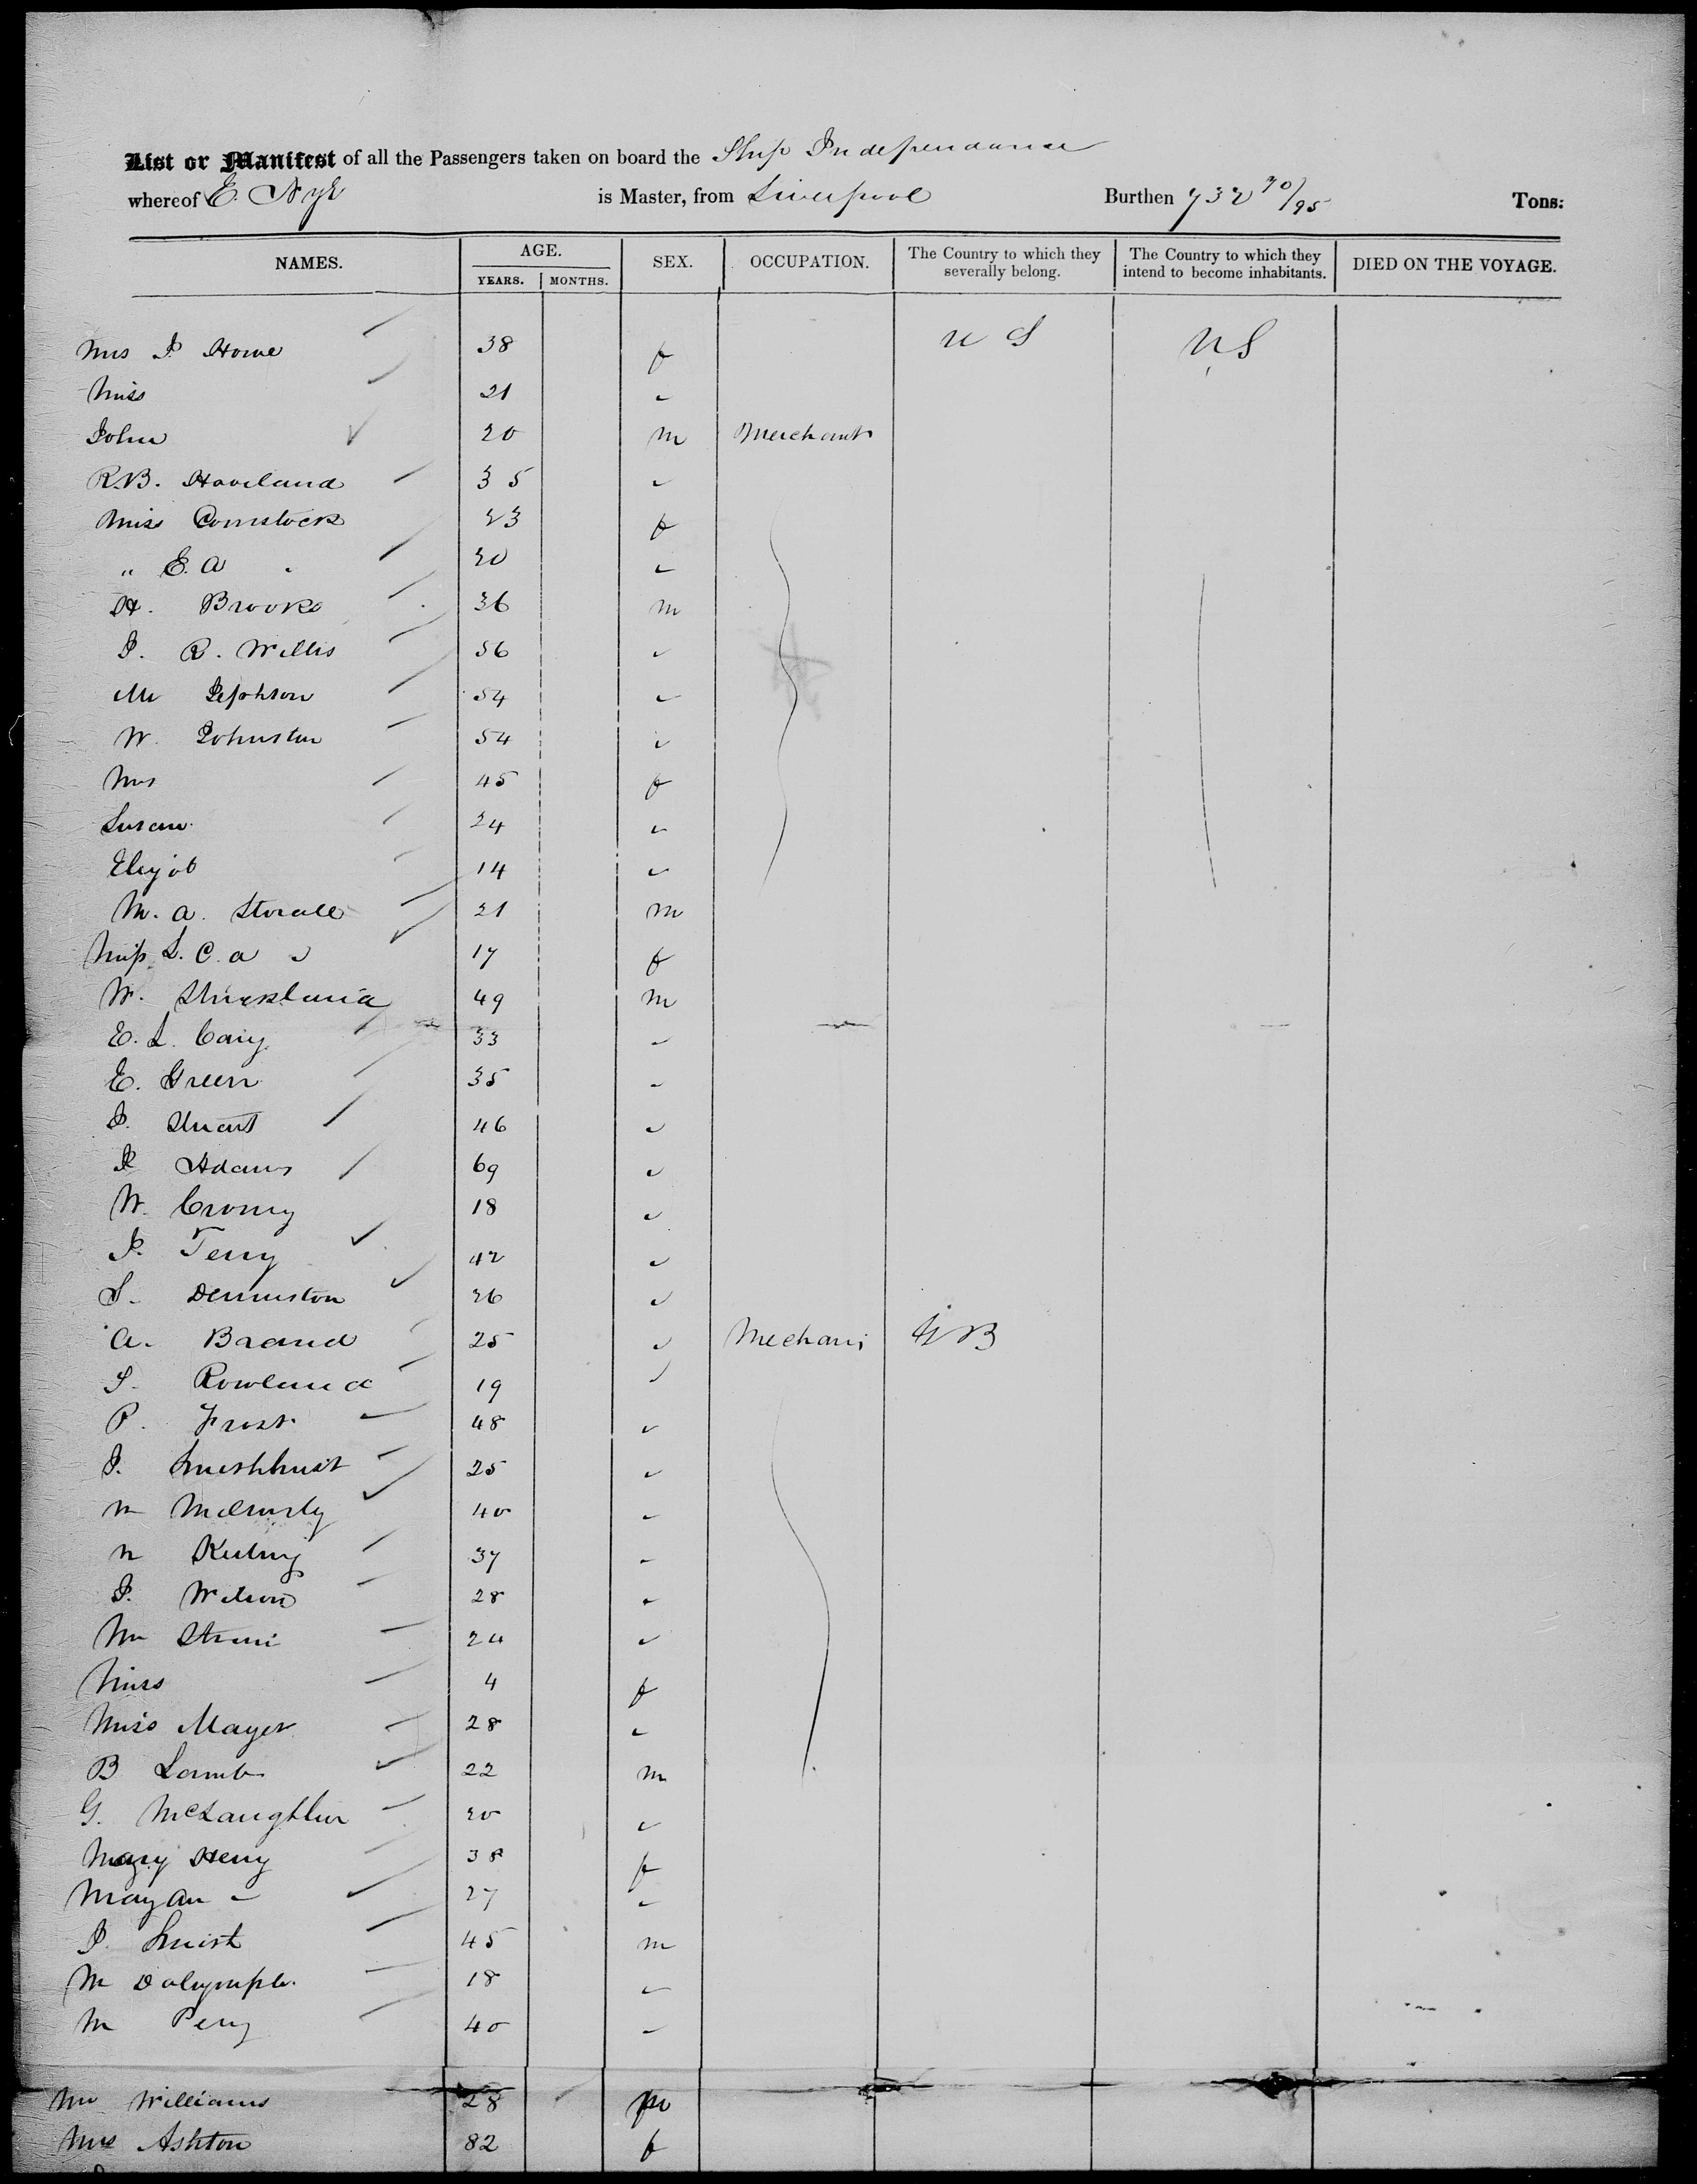 List or Manifest of all the Passengers taken on board the Ship Independance
whereof E. Nye is Master, from Liverpool Burthen 732 70/95 Tons:
NAMES. AGE. SEX. OCCUPATION. The Country to which they severally belong. The Country to which they intend to become inhabitants. DIED ON THE VOYAGE.
YEARS. MONTHS.
Mrs J Howe 38 f U S U S
Miss 21 "
John 20 m Merchant
R.B. Haviland 35 "
Miss Comstock 23 f
" E. A " 20 "
H. Brooks 36 m
J. R. Willis 56 "
Mr Jephson 54 "
W. Johnston 54 "
Mrs 45 f
Susan 24 "
14 "
M. A. 21 m
Miss L. C. A " 17 f
W. Strickland 49 m
E. L. Cary 33 "
E. Green 35 "
J. Stuart 46 "
J Adams 69 "
W. Cromy 18 "
J. Terry 42 "
S. Denniston 26 "
A. Brand 25 " Mechani G B
S. Rowland 19 "
P. Frost 48 "
J. 25 "
40 "
37 "
J. Wilson 28 "
24 "
Miss 4 f
Miss Mayer 28 "
B Lamb 22 m
G. McLaughlin 20 "
Mary Henry 38 f
Mary An " 27 "
J. 45 m
M Dalrymple 18 "
M Perry 40 "
Mr Williams 28 m
Mrs Ashton 82 f